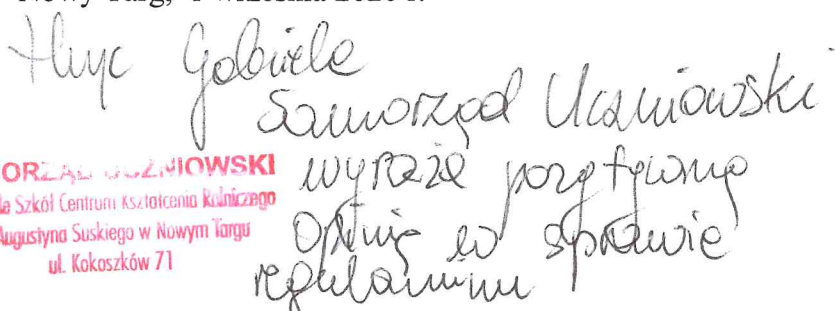 Nowy Targ,
Hyc Gabriela
Samorząd Uczniowski
wyraża pozytywną
Opinię w sprawie
regulaminu
ORZĄD UCZNIOWSKI
le Szkół Centrum Kształcenia Rolniczego
Augustyna Suskiego w Nowym Targu
ul. Kokoszków 71